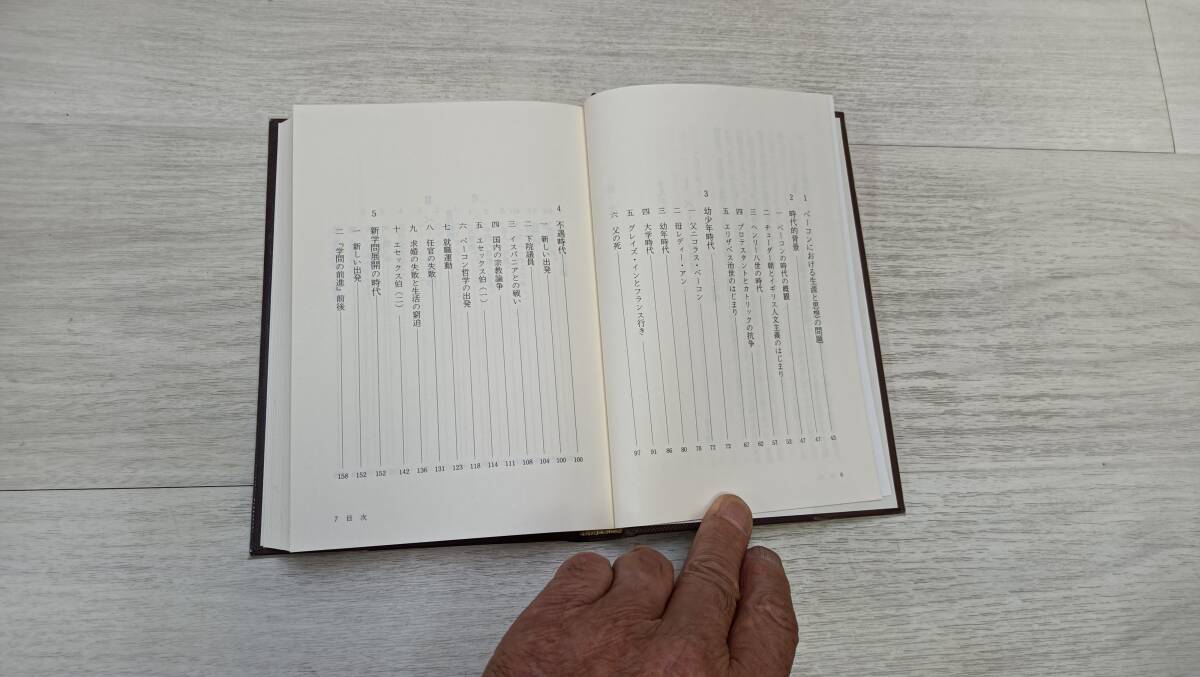 1 ベーコンにおける生涯と思想の問題 43
2 時代的背景 47
一 ベーコンの時代の概観 47
二 チューダー朝とイギリス人文主義のはじまり 53
三 ヘンリー八世の時代 57
四 プロテスタントとカトリックの抗争 62
五 エリザベス治世のはじまり 67
3 幼少年時代 72
一 父ニコラス・ベーコン 72
二 母レディー・アン 78
三 幼年時代 80
四 大学時代 86
五 グレイズ・インとフランス行き 91
六 父の死 97
6
4 不遇時代 100
一 新しい出発 100
二 下院議員 104
三 イスパニアとの戦い 108
四 国内の宗教論争 111
五 エセックス伯(一) 114
六 ベーコン哲学の出発 118
七 就職運動 123
八 任官の失敗 131
九 求婚の失敗と生活の窮迫 136
十 エセックス伯(二) 142
5 新学問展開の時代 152
一 新しい出発 152
二 『学問の前進』前後 158
7 目次